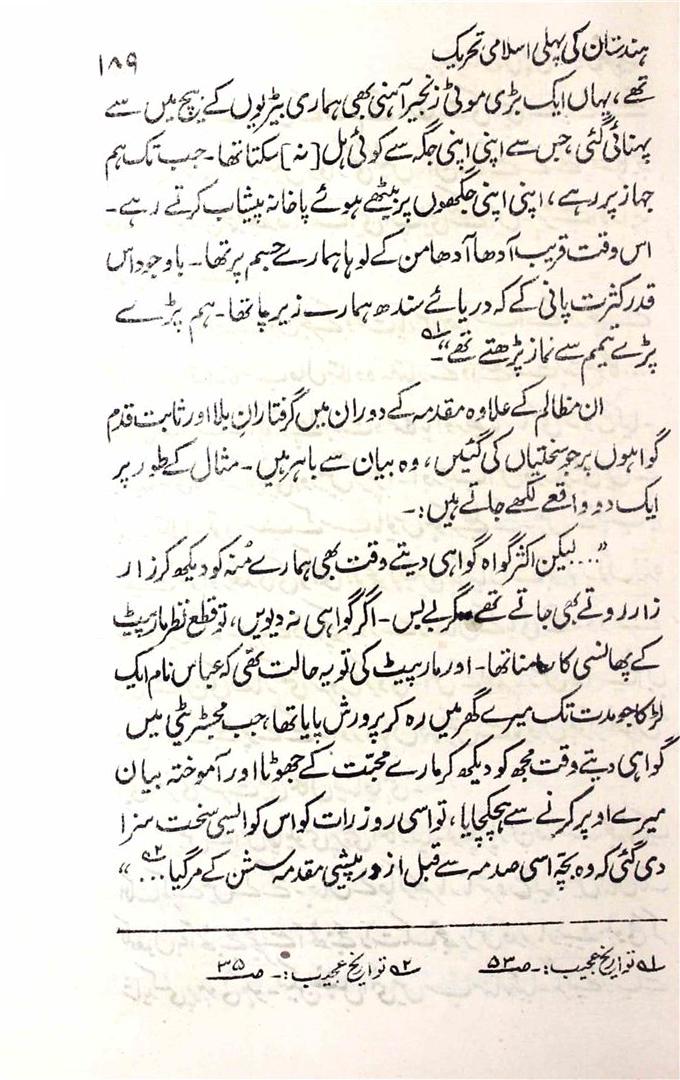 ہندستان کی پہلی اسلامی تحریک
۱۸۹
تھے، یہاں ایک بڑی موٹی زنجیر آہنی بھی ہماری بیڑیوں کے بیچ میں سے
پہنائی گئی، جس سے اپنی اپنی جگہ سے کوئی ہل [نہ] سکتا تھا۔ جب تک ہم
جہاز پر رہے، اپنی اپنی جگھوں پر بیٹھے ہوئے پاخانہ پیشاب کرتے رہے۔
اس وقت قریب آدھا آدھا من کے لوہا ہمارے جسم پر تھا۔ باوجود اس
قدر کثرت پانی کے کہ دریائے سندھ ہمارے زیر پا تھا۔ ہم پڑے
پڑے تیمم سے نماز پڑھتے تھے“۔ ۹۱
ان مظالم کے علاوہ مقدمہ کے دوران میں گرفتارانِ بلا اور ثابت قدم
گواہوں پر جو سختیاں کی گئیں، وہ بیان سے باہر ہیں۔ مثال کے طور پر
ایک دو واقعے لکھے جاتے ہیں:۔
”.... لیکن اکثر گواہ گواہی دیتے وقت بھی ہمارے مُنہ کو دیکھ کر زار
زار روتے بھی جاتے تھے مگر بے بس۔ اگر گواہی نہ دیویں، تو قطع نظر مارپیٹ
کے پھانسی کا سامنا تھا۔ اور مارپیٹ کی تو یہ حالت تھی کہ عباس نام ایک
لڑکا جو مدت تک میرے گھر میں رہ کر پرورش پایا تھا، جب مجسٹریٹی میں
گواہی دیتے وقت مجھ کو دیکھ کر مارے محبّت کے جھوٹا اور آموختہ بیان
میرے اوپر کرنے سے ہچکچایا، تو اسی روز رات کو اس کو ایسی سخت سزا
دی گئی کہ وہ بچّہ اسی صدمہ سے قبل از درپیشی مقدمہ سشن کے مرگیا ۹۲ ... “
۹۱ تواریخ عجیب:۔ صـ ۵۳
۹۲ تواریخ عجیب:۔ صـ ۳۵